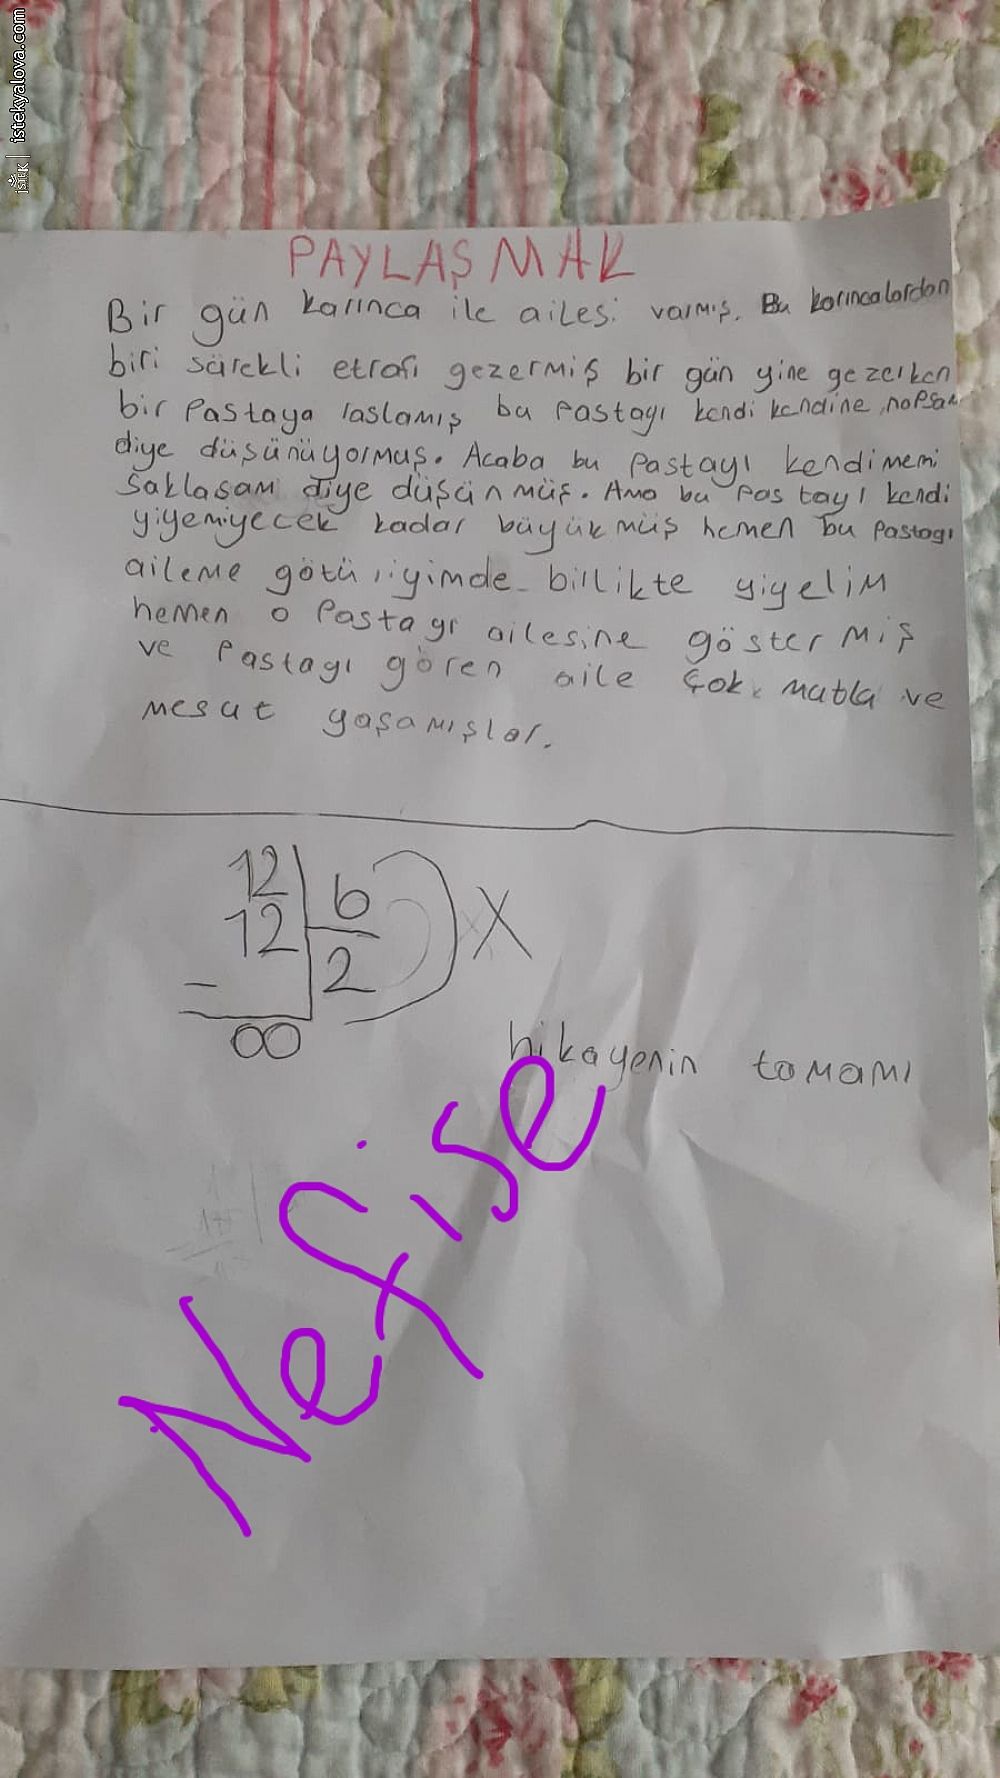 iSTEK | istekyalova.com
PAYLAŞMAK
Bir gün karınca ile ailesi varmış. Bu karıncalardan
biri sürekli etrafı gezermiş bir gün yine gezerken
bir Pastaya raslamış bu Pastayı kendi kendine napsam
diye düşünüyormuş. Acaba bu Pastayı kendimemi
saklasam diye düşünmüş. Ama bu Pastayı kendi
yiyemiyecek kadar büyükmüş hemen bu Pastayı
aileme götüriyimde birlikte yiyelim
hemen o Pastayı ailesine göstermiş
ve Pastayı gören aile çok mutlu ve
mesut yaşamışlar.
12 6
12 2 X
-
00
hikayenin tamamı
Nefise